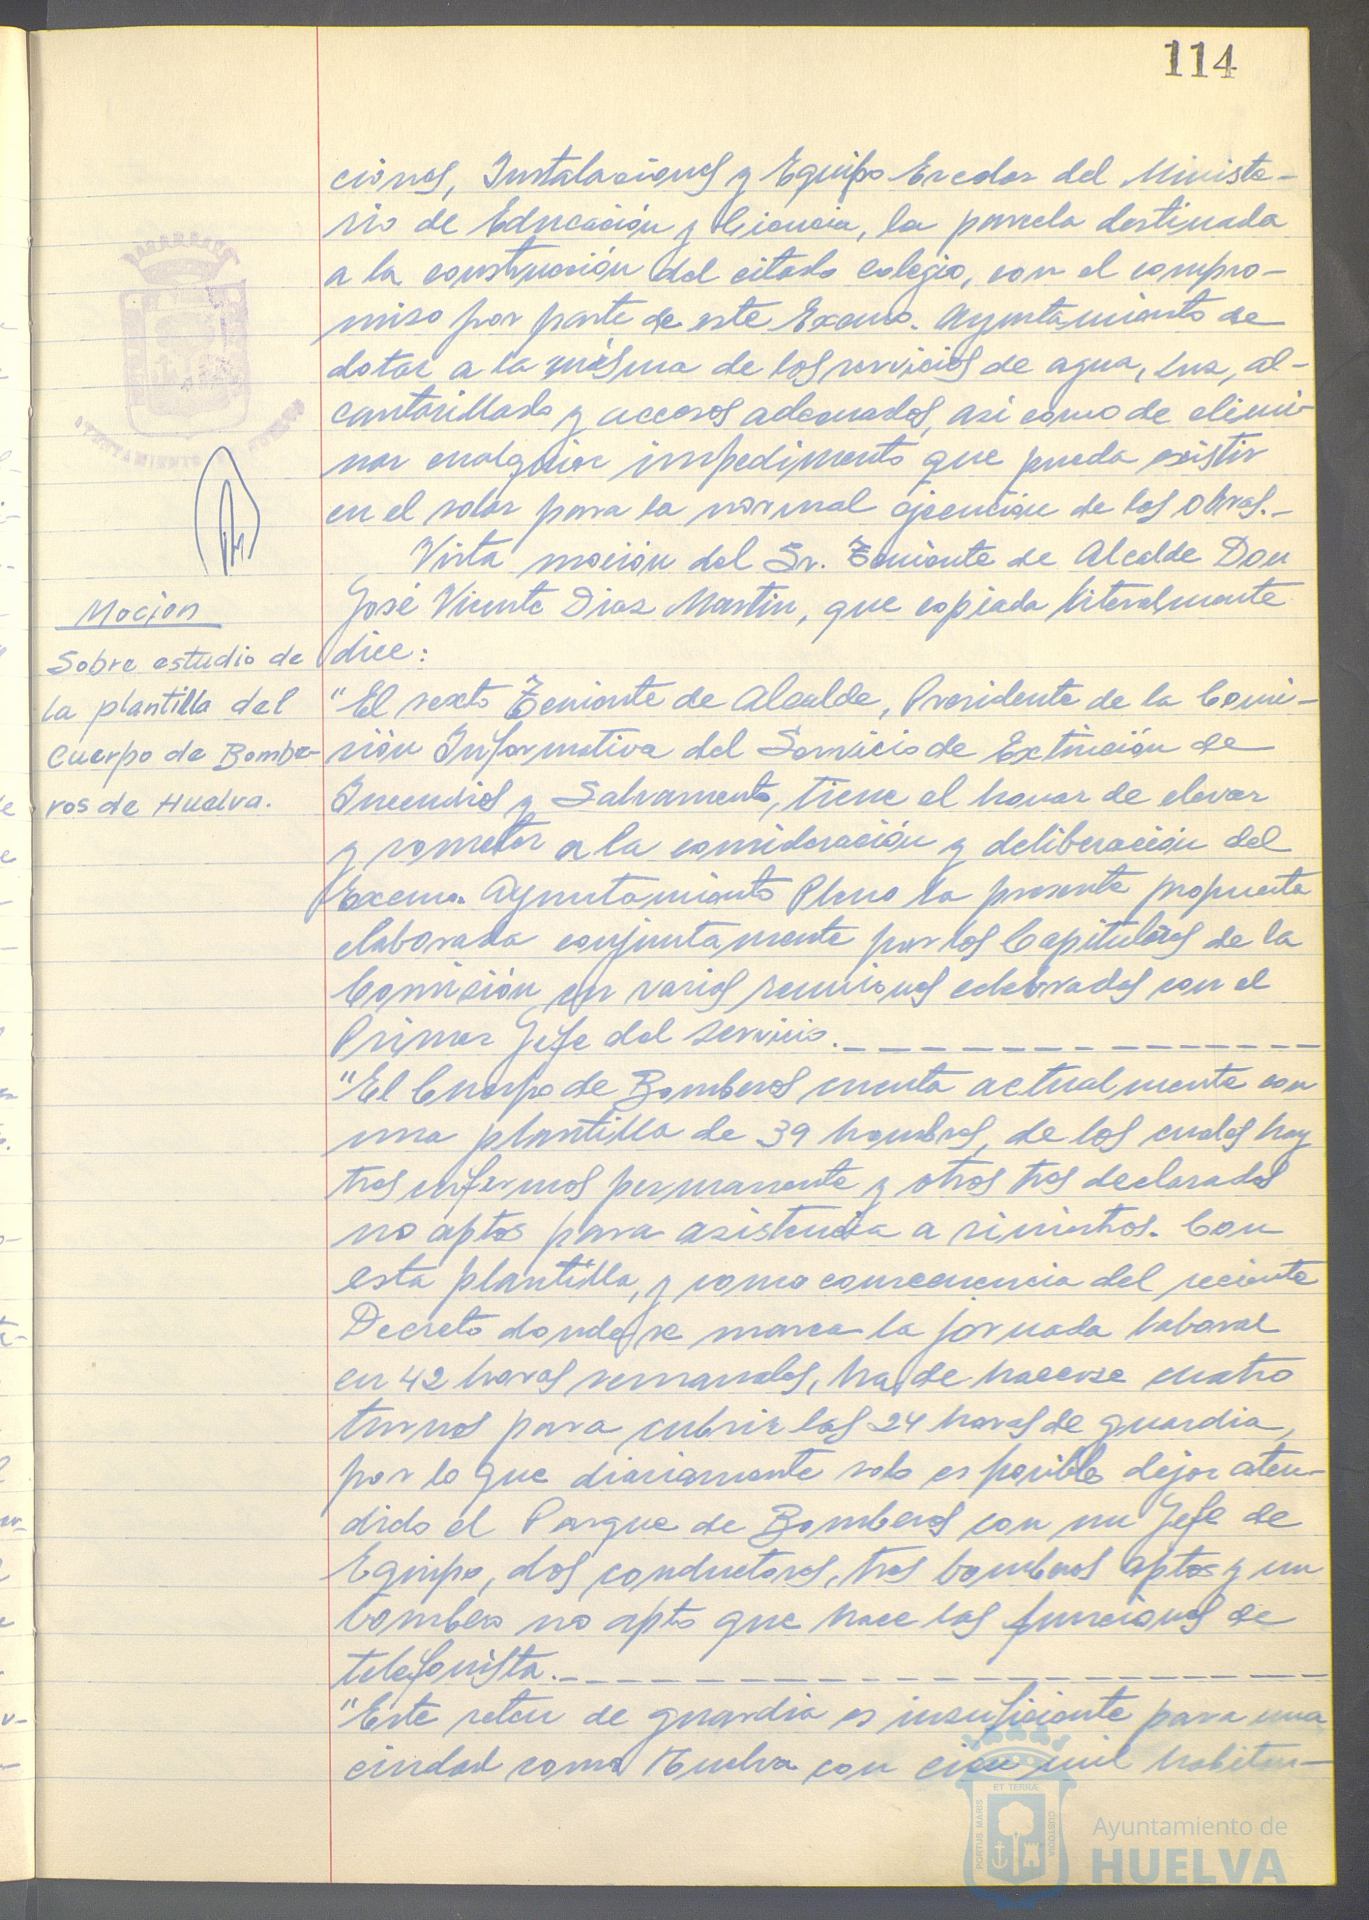 114
ciones, Instalaciones y Equipo Escolar del Ministe-
rio de Educación y Ciencia, la parcela destinada
a la construcción del citado colegio, con el compro-
miso por parte de este Excmo. Ayuntamiento de
dotar a la misma de los servicios de agua, luz, al-
cantarillado y accesos adecuados, asi como de elimi-
nar cualquier impedimento que pueda existir
en el solar para la normal ejecución de las obras.-
Vista moción del Sr. Teniente de Alcalde Don
José Vicente Diaz Martin, que copiada literalmente
dice:
Mocion
Sobre estudio de
la plantilla del
Cuerpo de Bombe-
ros de Huelva.
"El sexto Teniente de Alcalde, Presidente de la Comi-
sión Informativa del Servicio de Extinción de
Incendios y Salvamento, tiene el honor de elevar
y someter a la consideración y deliberación del
Excmo. Ayuntamiento Pleno la presente propuesta
elaborada conjuntamente por los Capitulares de la
Comisión en varias reuniones celebradas con el
Primer Jefe del servicio.
"El Cuerpo de Bomberos cuenta actualmente con
una plantilla de 39 hombres, de los cuales hay
tres enfermos permanente y otros tres declarados
no aptos para asistencia a siniestros. Con
esta plantilla, y como consecuencia del reciente
Decreto donde se marca la jornada laboral
en 42 horas semanales, ha de hacerse cuatro
turnos para cubrir las 24 horas de guardia,
por lo que diariamente solo es posible dejar aten-
dido el Parque de Bomberos con un Jefe de
Equipo, dos conductores, tres bomberos aptos y un
bombero no apto que hace las funciones de
telefonista.
"Este reten de guardia es insuficiente para una
ciudad como Huelva con cien mil habitan-
PORTUS MARIS ET TERRÆ CUSTODIA
Ayuntamiento de
HUELVA